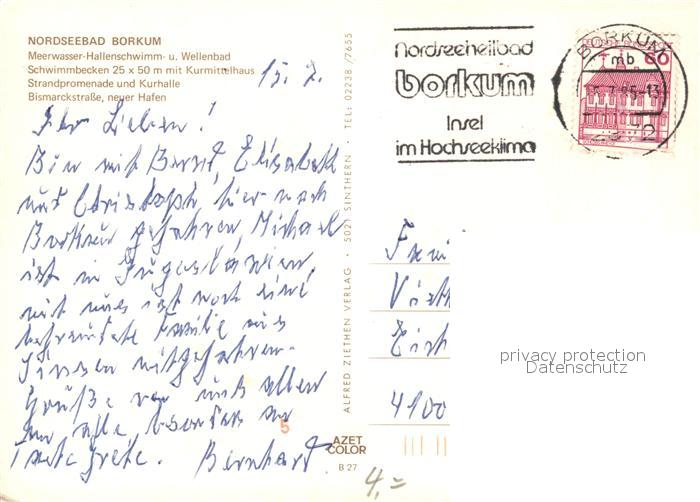 NORDSEEBAD BORKUM
Meerwasser-Hallenschwimm- u. Wellenbad
Schwimmbecken 25 x 50 m mit Kurmittelhaus
Strandpromenade und Kurhalle
Bismarckstraße, neuer Hafen
15. 7.
Ihr Lieben!
Bin mit Bernd, Elisabeth
und Christoph, hier nach
Borkum gefahren, Michael
ist in Jugoslawien,
mit uns ist noch eine
befreundete Familie aus
mitgefahren.
Grüße von uns allen
an alle, besonders an
Tante Grete. Bernhard.
ALFRED ZIETHEN VERLAG · 5021 SINTHERN · TEL: 02238 /7655
Nordseeheilbad
borkum
Insel
im Hochseeklima
BORKUM
mb
60
2972
4100
privacy protection
Datenschutz
5
AZET
COLOR
B 27
4,=